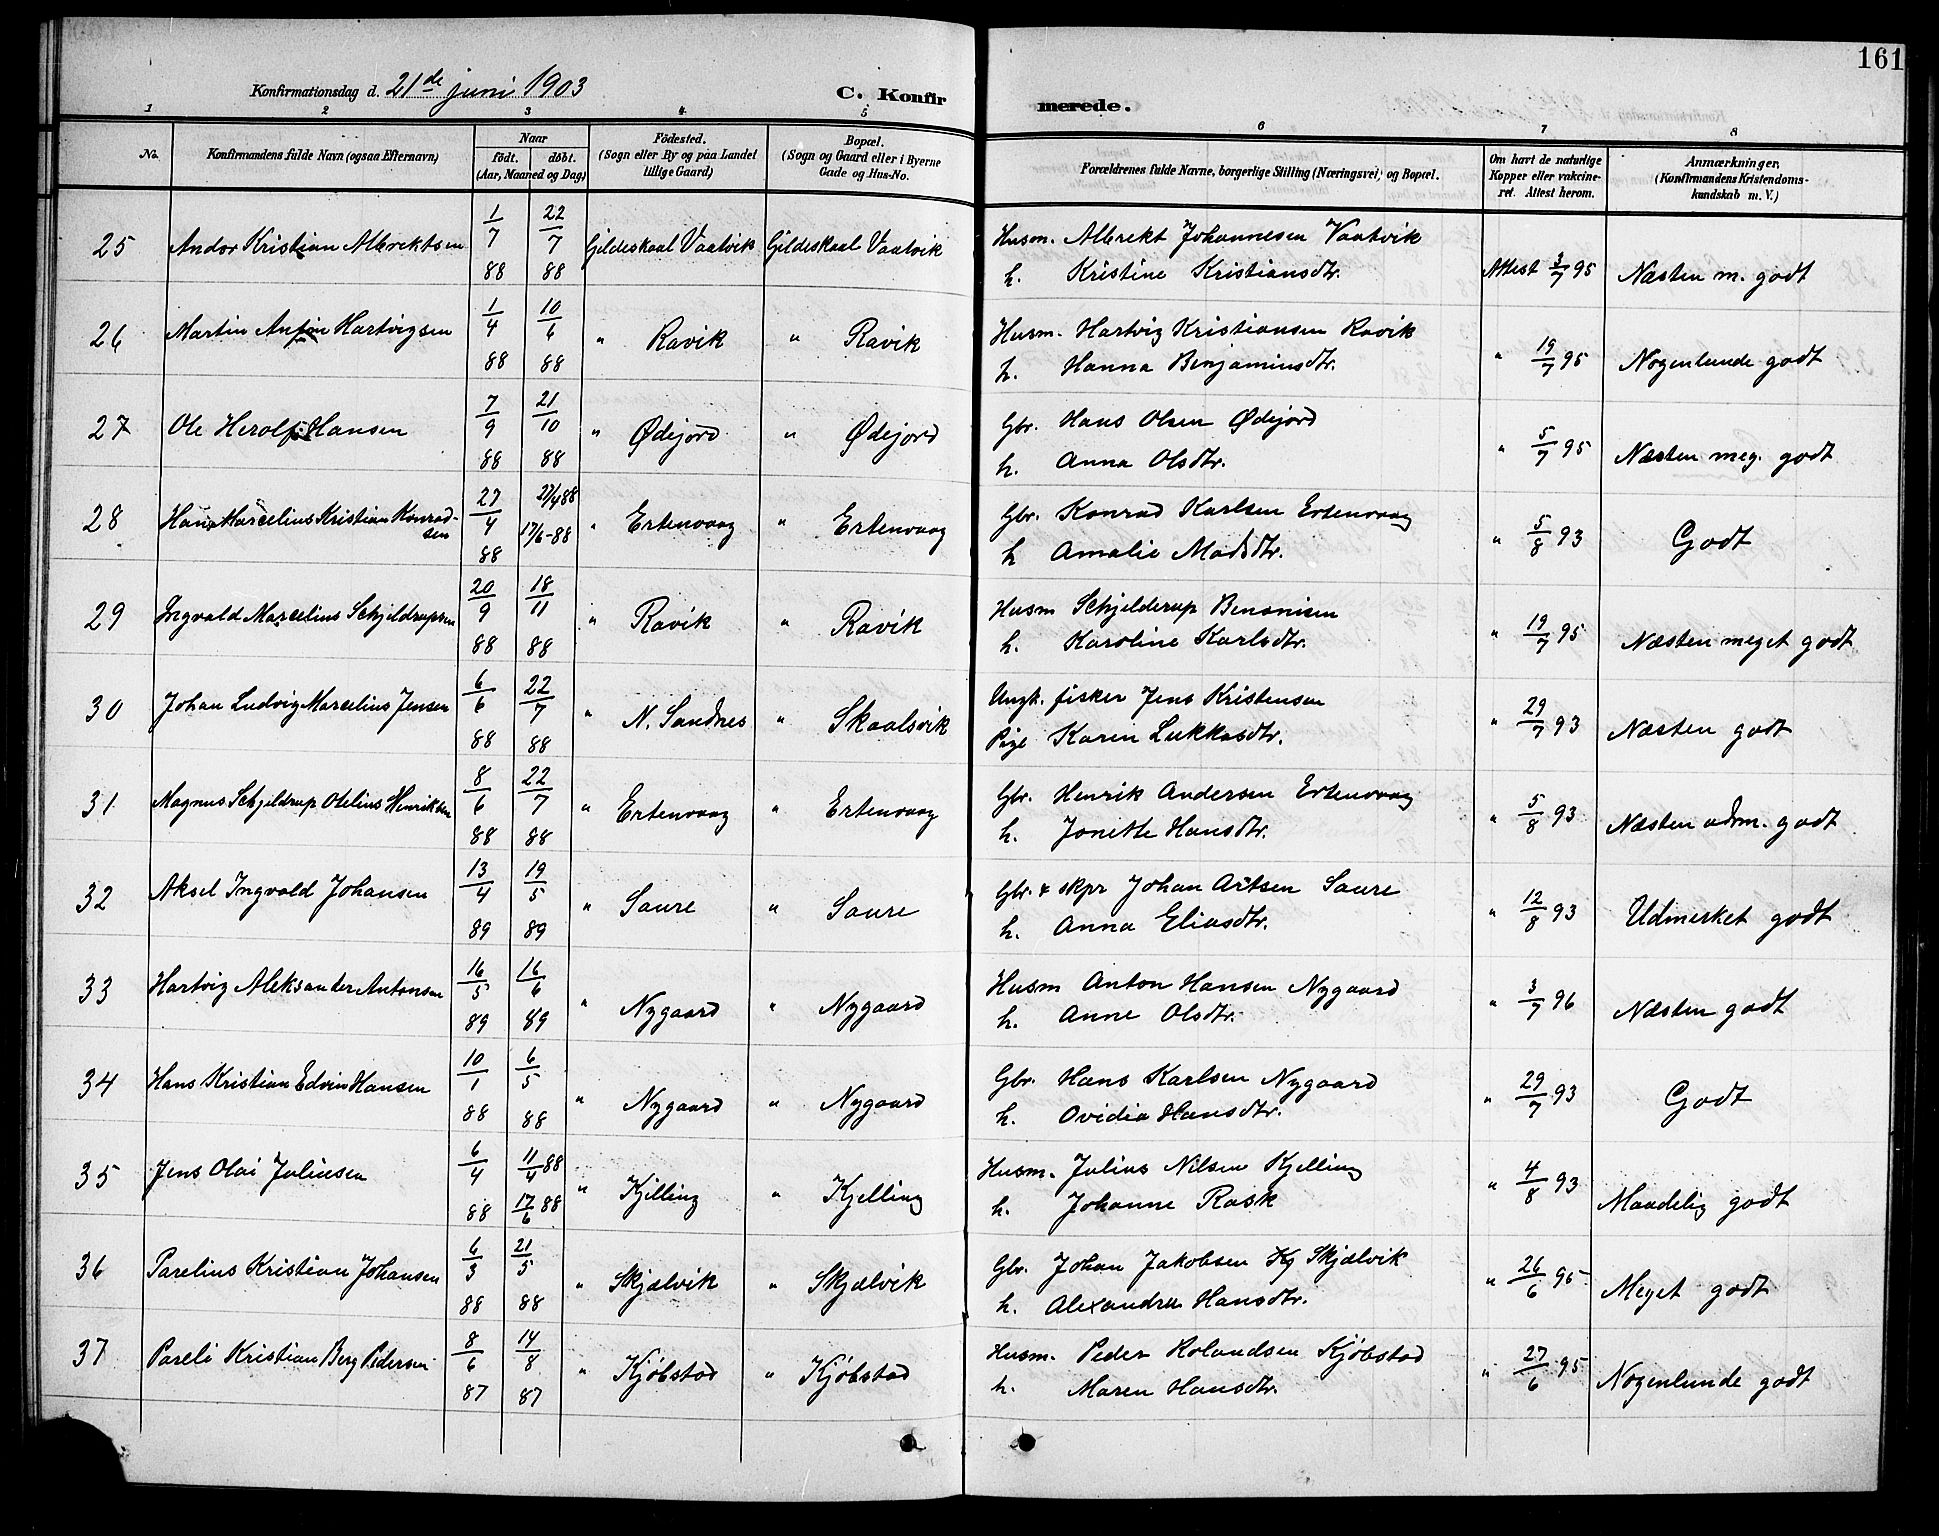 161
Konfirmationsdag d. 21de juni 1903
C. Konfirmerede.
1 2 3 4 5 6 7 8
No. | Konfirmandens fulde Navn (ogsaa Efternavn) | Naar født. døbt. (Aar, Maaned og Dag) | Fødested. (Sogn eller By og paa Landet tillige Gaard) | Bopæl. (Sogn og Gaard eller i Byerne Gade og Hus-No. | Forældrenes fulde Navne, borgerlige Stilling (Næringsvei) og Bopæl. | Om havt de naturlige Kopper eller vakcineret. Attest herom. | Anmærkninger. (Konfirmandens Kristendomskundskab m. V.)
25 Andor Kristian Albrektsen 1/7 88 22/7 88 Gildeskaal Vaatvik Gildeskaal Vaatvik Husm. Albrekt Johannesen Vaatvik Attest 3/7 95 Næsten m. godt
h. Kristine Kristiansdtr.
26 Martin Anton Hartvigsen 1/4 88 10/6 88 " Ravik " Ravik Husm. Hartvig Kristiansen Ravik " 19/7 95 Nogenlunde godt
h. Hanna Benjaminsdtr.
27 Ole Herolf Hansen 7/9 88 21/10 88 " Ødejord " Ødejord Gbr. Hans Olsen Ødejord " 5/7 95 Næsten meg. godt
h. Anna Olsdtr.
28 Hans Marcelius Kristian Konradsen 27/4 88 27/4 88 17/6-88 " Ertenvaag " Ertenvaag Gbr. Konrad Karlsen Ertenvaag " 5/8 93 Godt
h Amalie Madsdtr.
29 Ingvald Marcelius Schjeldrupsen 20/9 88 18/11 88 " Ravik " Ravik Husm Schjelderup Benonisen " 19/7 95 Næsten meget godt
h. Karoline Karlsdtr.
30 Johan Ludvig Marcelius Jensen 6/6 88 22/7 88 " N. Sandnes " Skaalsvik Ungk. fisker Jens Kristensen " 29/7 93 Næsten godt
Pige Karen Lukkasdtr.
31 Magnus Schjeldrup Otelius Henriksen 8/6 88 22/7 88 " Ertenvaag " Ertenvaag Gbr. Henrik Andersen Ertenvaag " 5/8 93 Næsten udm. godt
h. Jonette Hansdtr.
32 Aksel Ingvald Johansen 13/4 89 19/5 89 " Saure " Saure Gbr. & skpr Johan Artsen Saure " 12/8 93 Udmerket godt
h. Anna Eliasdtr.
33 Hartvig Aleksander Antonsen 16/5 89 16/6 89 " Nygaard " Nygaard Husm Anton Hansen Nygaard " 3/7 96 Næsten godt
h. Anne Olsdtr.
34 Hans Kristian Edvin Hansen 10/1 88 6/5 88 " Nygaard " Nygaard Gbr. Hans Karlsen Nygaard " 29/7 93 Godt
h. Ovidia Hansdtr.
35 Jens Olai Juliusen 6/4 88 11/4 88 17/6 88 " Kjelling " Kjelling Husm. Julius Nilsen Kjelling " 4/8 93 Maadelig godt
h. Johanne Rask
36 Parelius Kristian Johansen 6/3 88 21/5 88 " Skjælvik " Skjælvik Gbr. Johan Jakobsen Kj Skjælvik " 26/6 95 Meget godt
h. Alexandra Hansdtr.
37 Pareli Kristian Berg Pedersen 8/6 87 14/8 87 " Kjøbstad " Kjøbstad Husm. Peder Rolandsen Kjøbstad " 27/6 95 Nogenlunde godt
h. Maren Hansdtr.